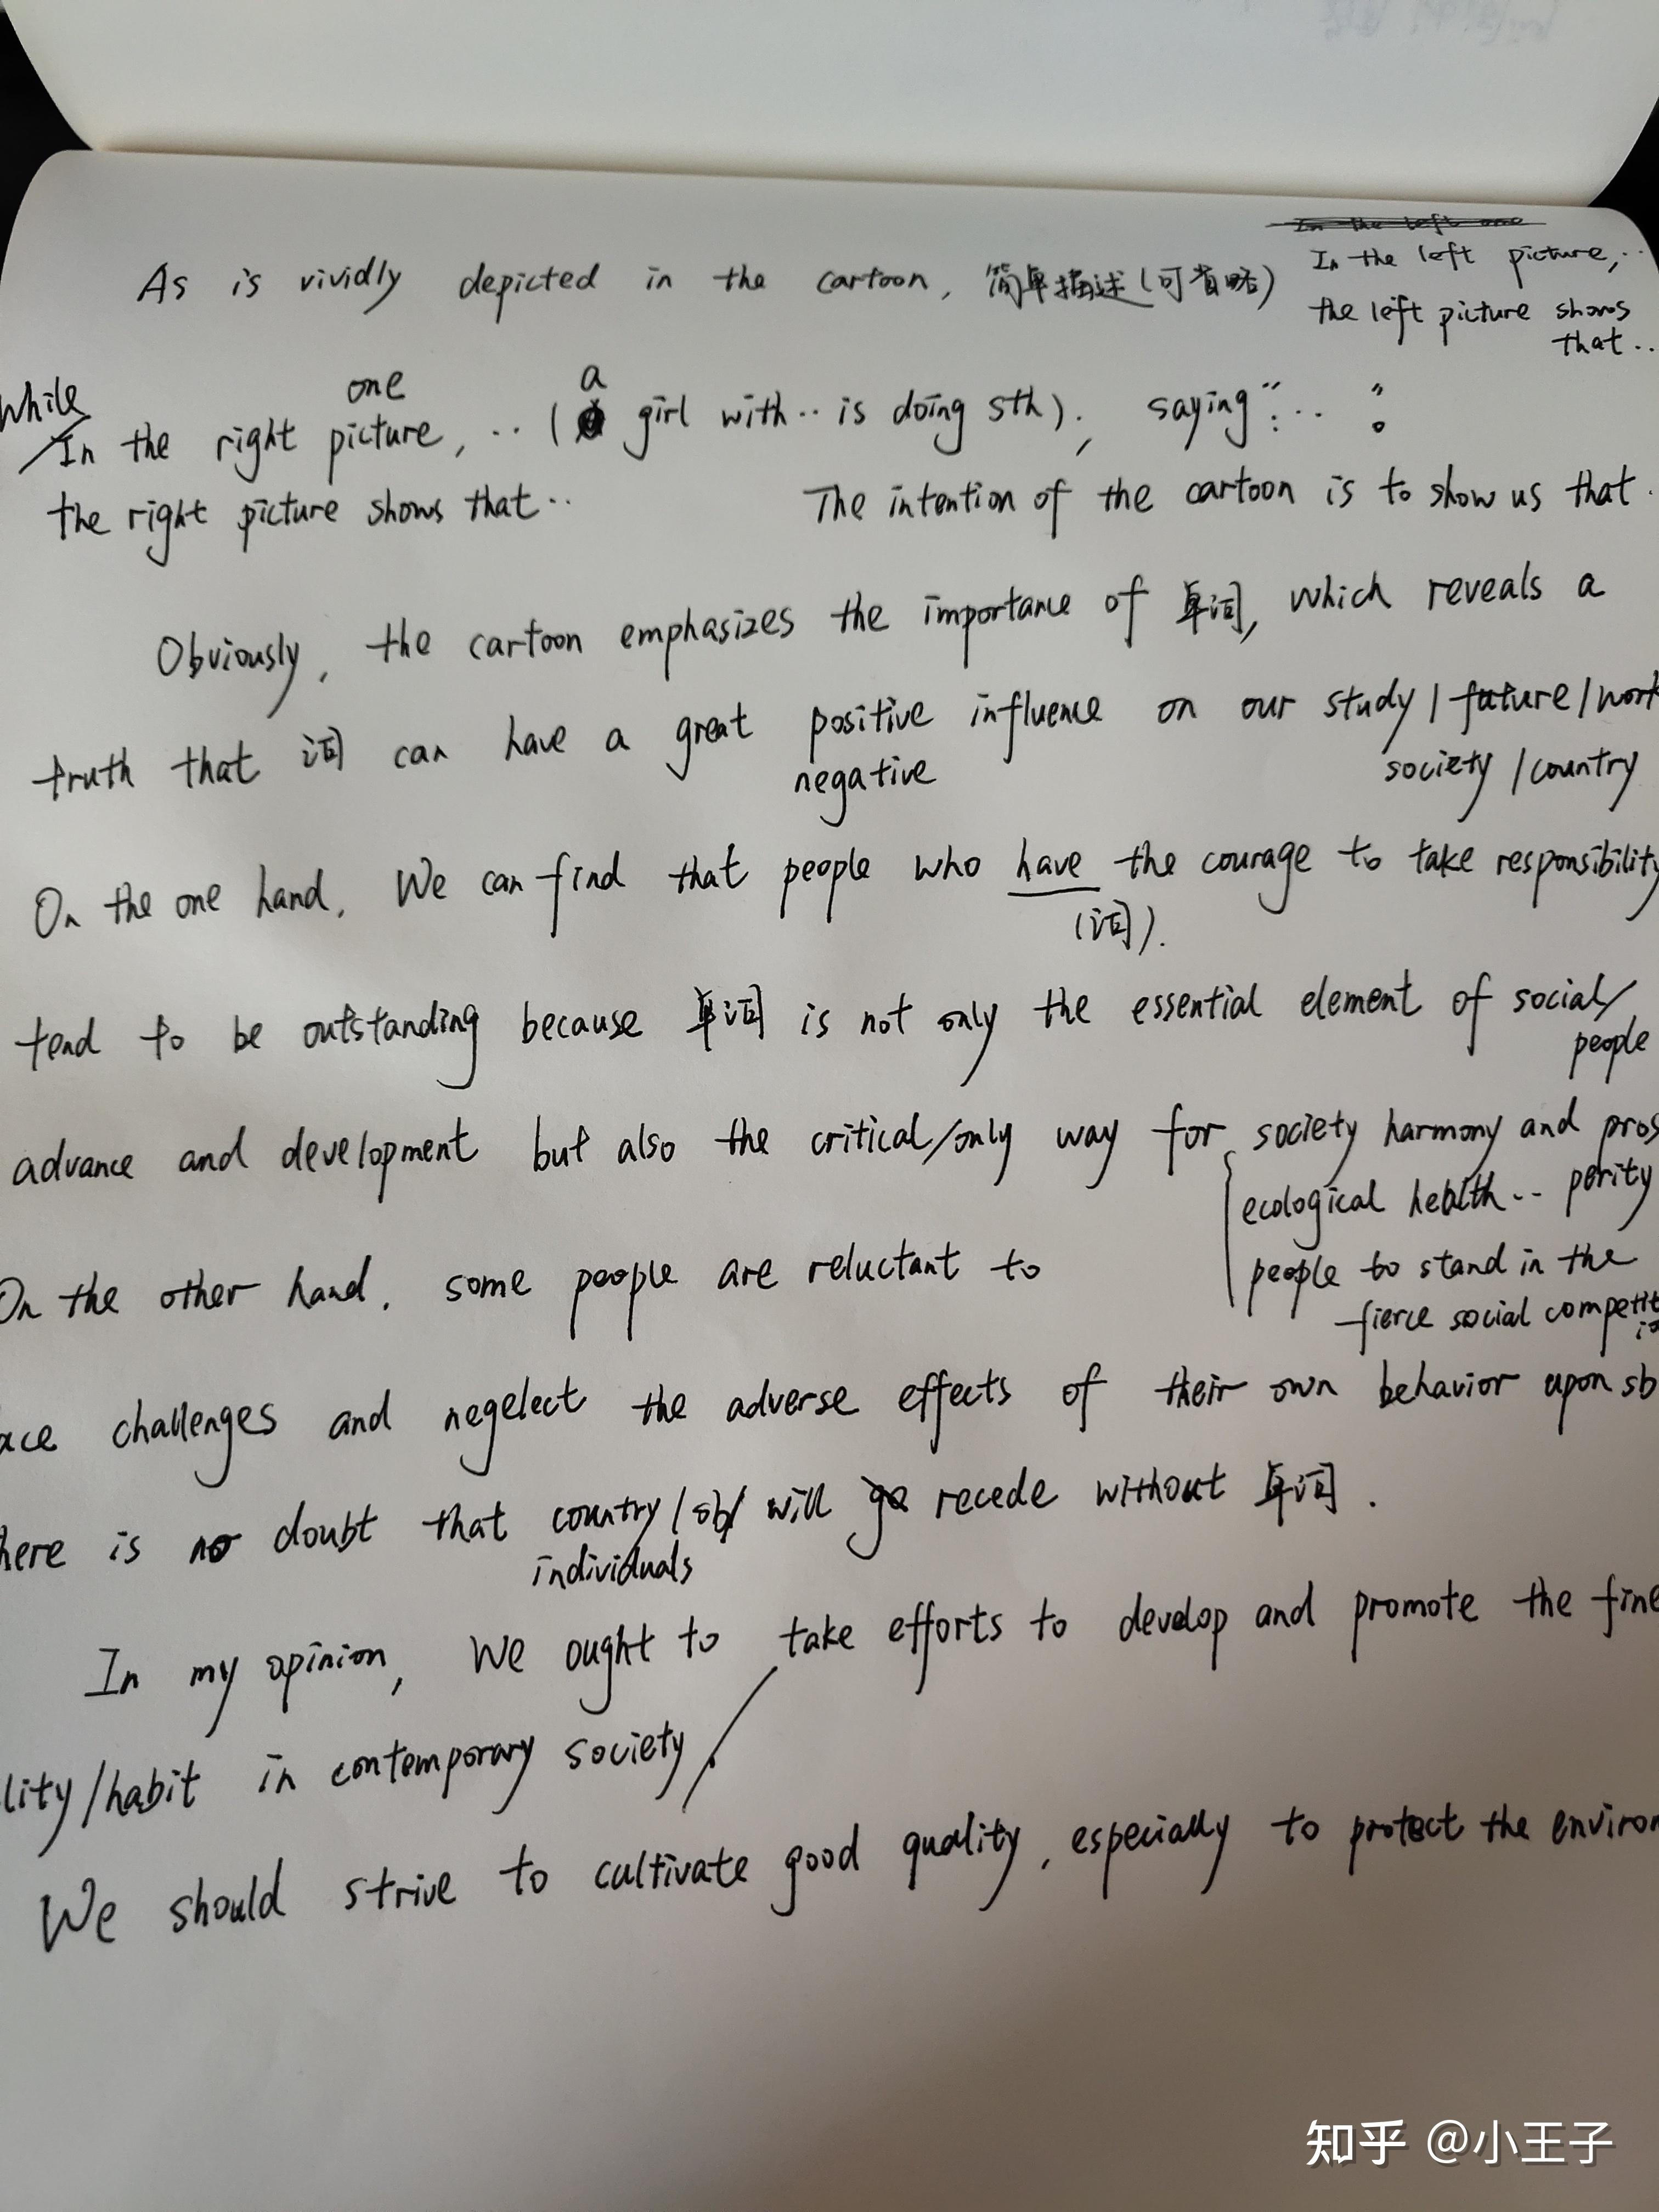 In the left one
As is vividly depicted in the cartoon, 简单描述(可省略) In the left picture,..
the left picture shows
that..
While one a
In the right picture, .. ( girl with.. is doing sth)., saying "... "。
the right picture shows that.. The intention of the cartoon is to show us that.
Obviously, the cartoon emphasizes the importance of 单词, which reveals a
truth that 词 can have a great positive influence on our study/future/work
negative society/country
On the one hand. We can find that people who have the courage to take responsibility
(词).
tend to be outstanding because 单词 is not only the essential element of social/
people
advance and development but also the critical/only way for society harmony and pros
ecological health.. perity
On the other hand. some people are reluctant to people to stand in the
fierce social competit
io
ace challenges and negelect the adverse effects of their own behavior upon sb
here is no doubt that country/sb/ will go recede without 单词.
individuals
In my opinion, We ought to take efforts to develop and promote the fine
lity/habit in contemporary society.
We should strive to cultivate good quality, especially to protect the environ
知乎 @小王子